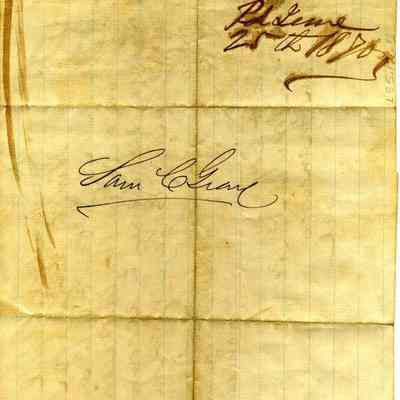 Rd June
25th 1870
Sam C Gray